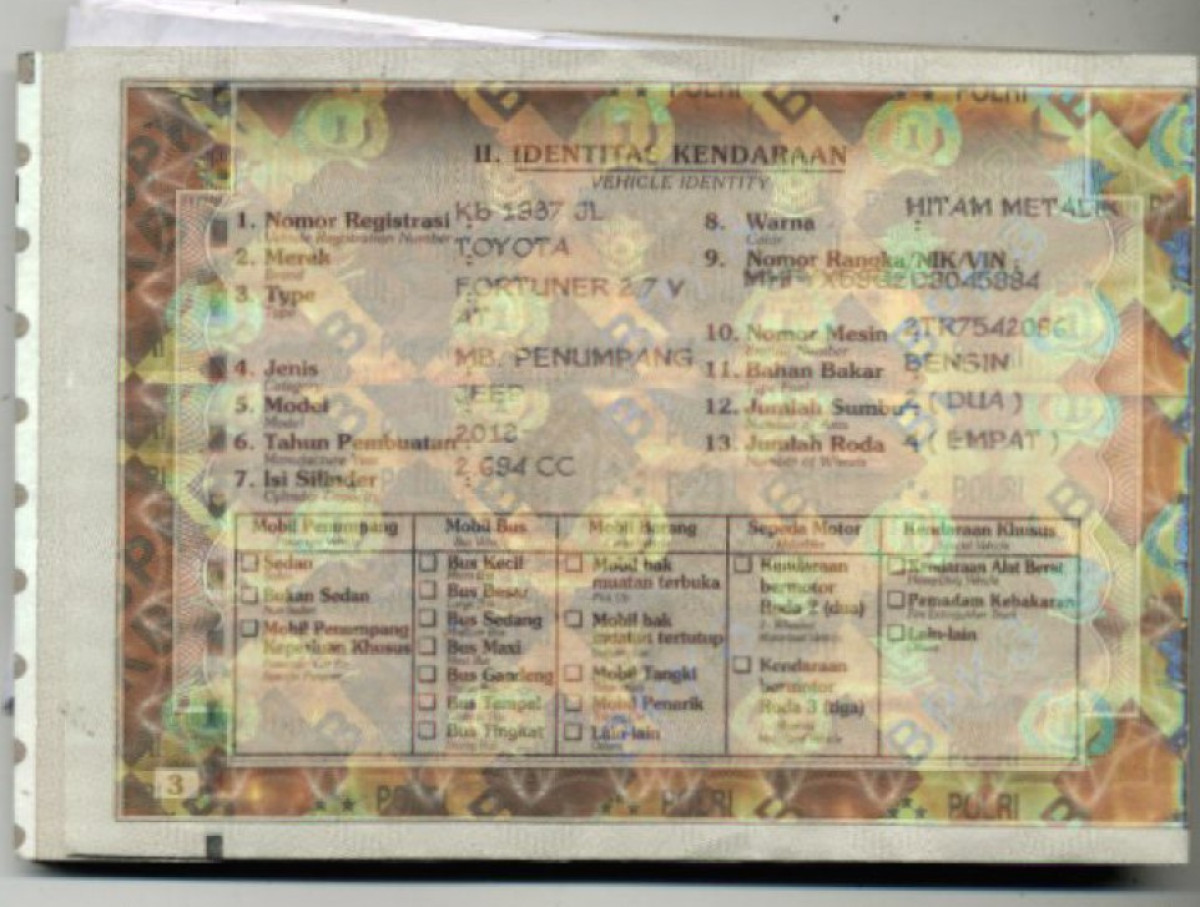 II. IDENTITAS KENDARAAN
VEHICLE IDENTITY
1. Nomor Registrasi : KB 1937 JL
Vehicle Registration Number
2. Merek : TOYOTA
Brand
3. Type : FORTUNER 2.7 V
Type AT
4. Jenis : MB. PENUMPANG
Category
5. Model : JEEP
Model
6. Tahun Pembuatan : 2012
Manufacture Year
7. Isi Silinder : 2.694 CC
Cylinder Capacity
8. Warna : HITAM METALIK
Color
9. Nomor Rangka/NIK/VIN :
10. Nomor Mesin
Engine Number
11. Bahan Bakar : BENSIN
12. Jumlah Sumbu 2 ( DUA )
13. Jumlah Roda 4 ( EMPAT )
Number of Wheels
Mobil Penumpang
Sedan
Bukan Sedan
Mobil Penumpang
Keperluan Khusus
Mobil Bus
Bus Kecil
Bus Besar
Bus Sedang
Bus Maxi
Bus Gandeng
Bus Tempel
Bus Tingkat
Mobil Barang
Mobil bak
muatan terbuka
Mobil bak
muatan tertutup
Mobil Tangki
Mobil Penarik
Lain-lain
Sepeda Motor
Kendaraan
bermotor
Roda 2 (dua)
Kendaraan
bermotor
Roda 3 (tiga)
Kendaraan Khusus
Kendaraan Alat Berat
Pemadam Kebakaran
Lain-lain
3
POLRI
POLRI
POLRI